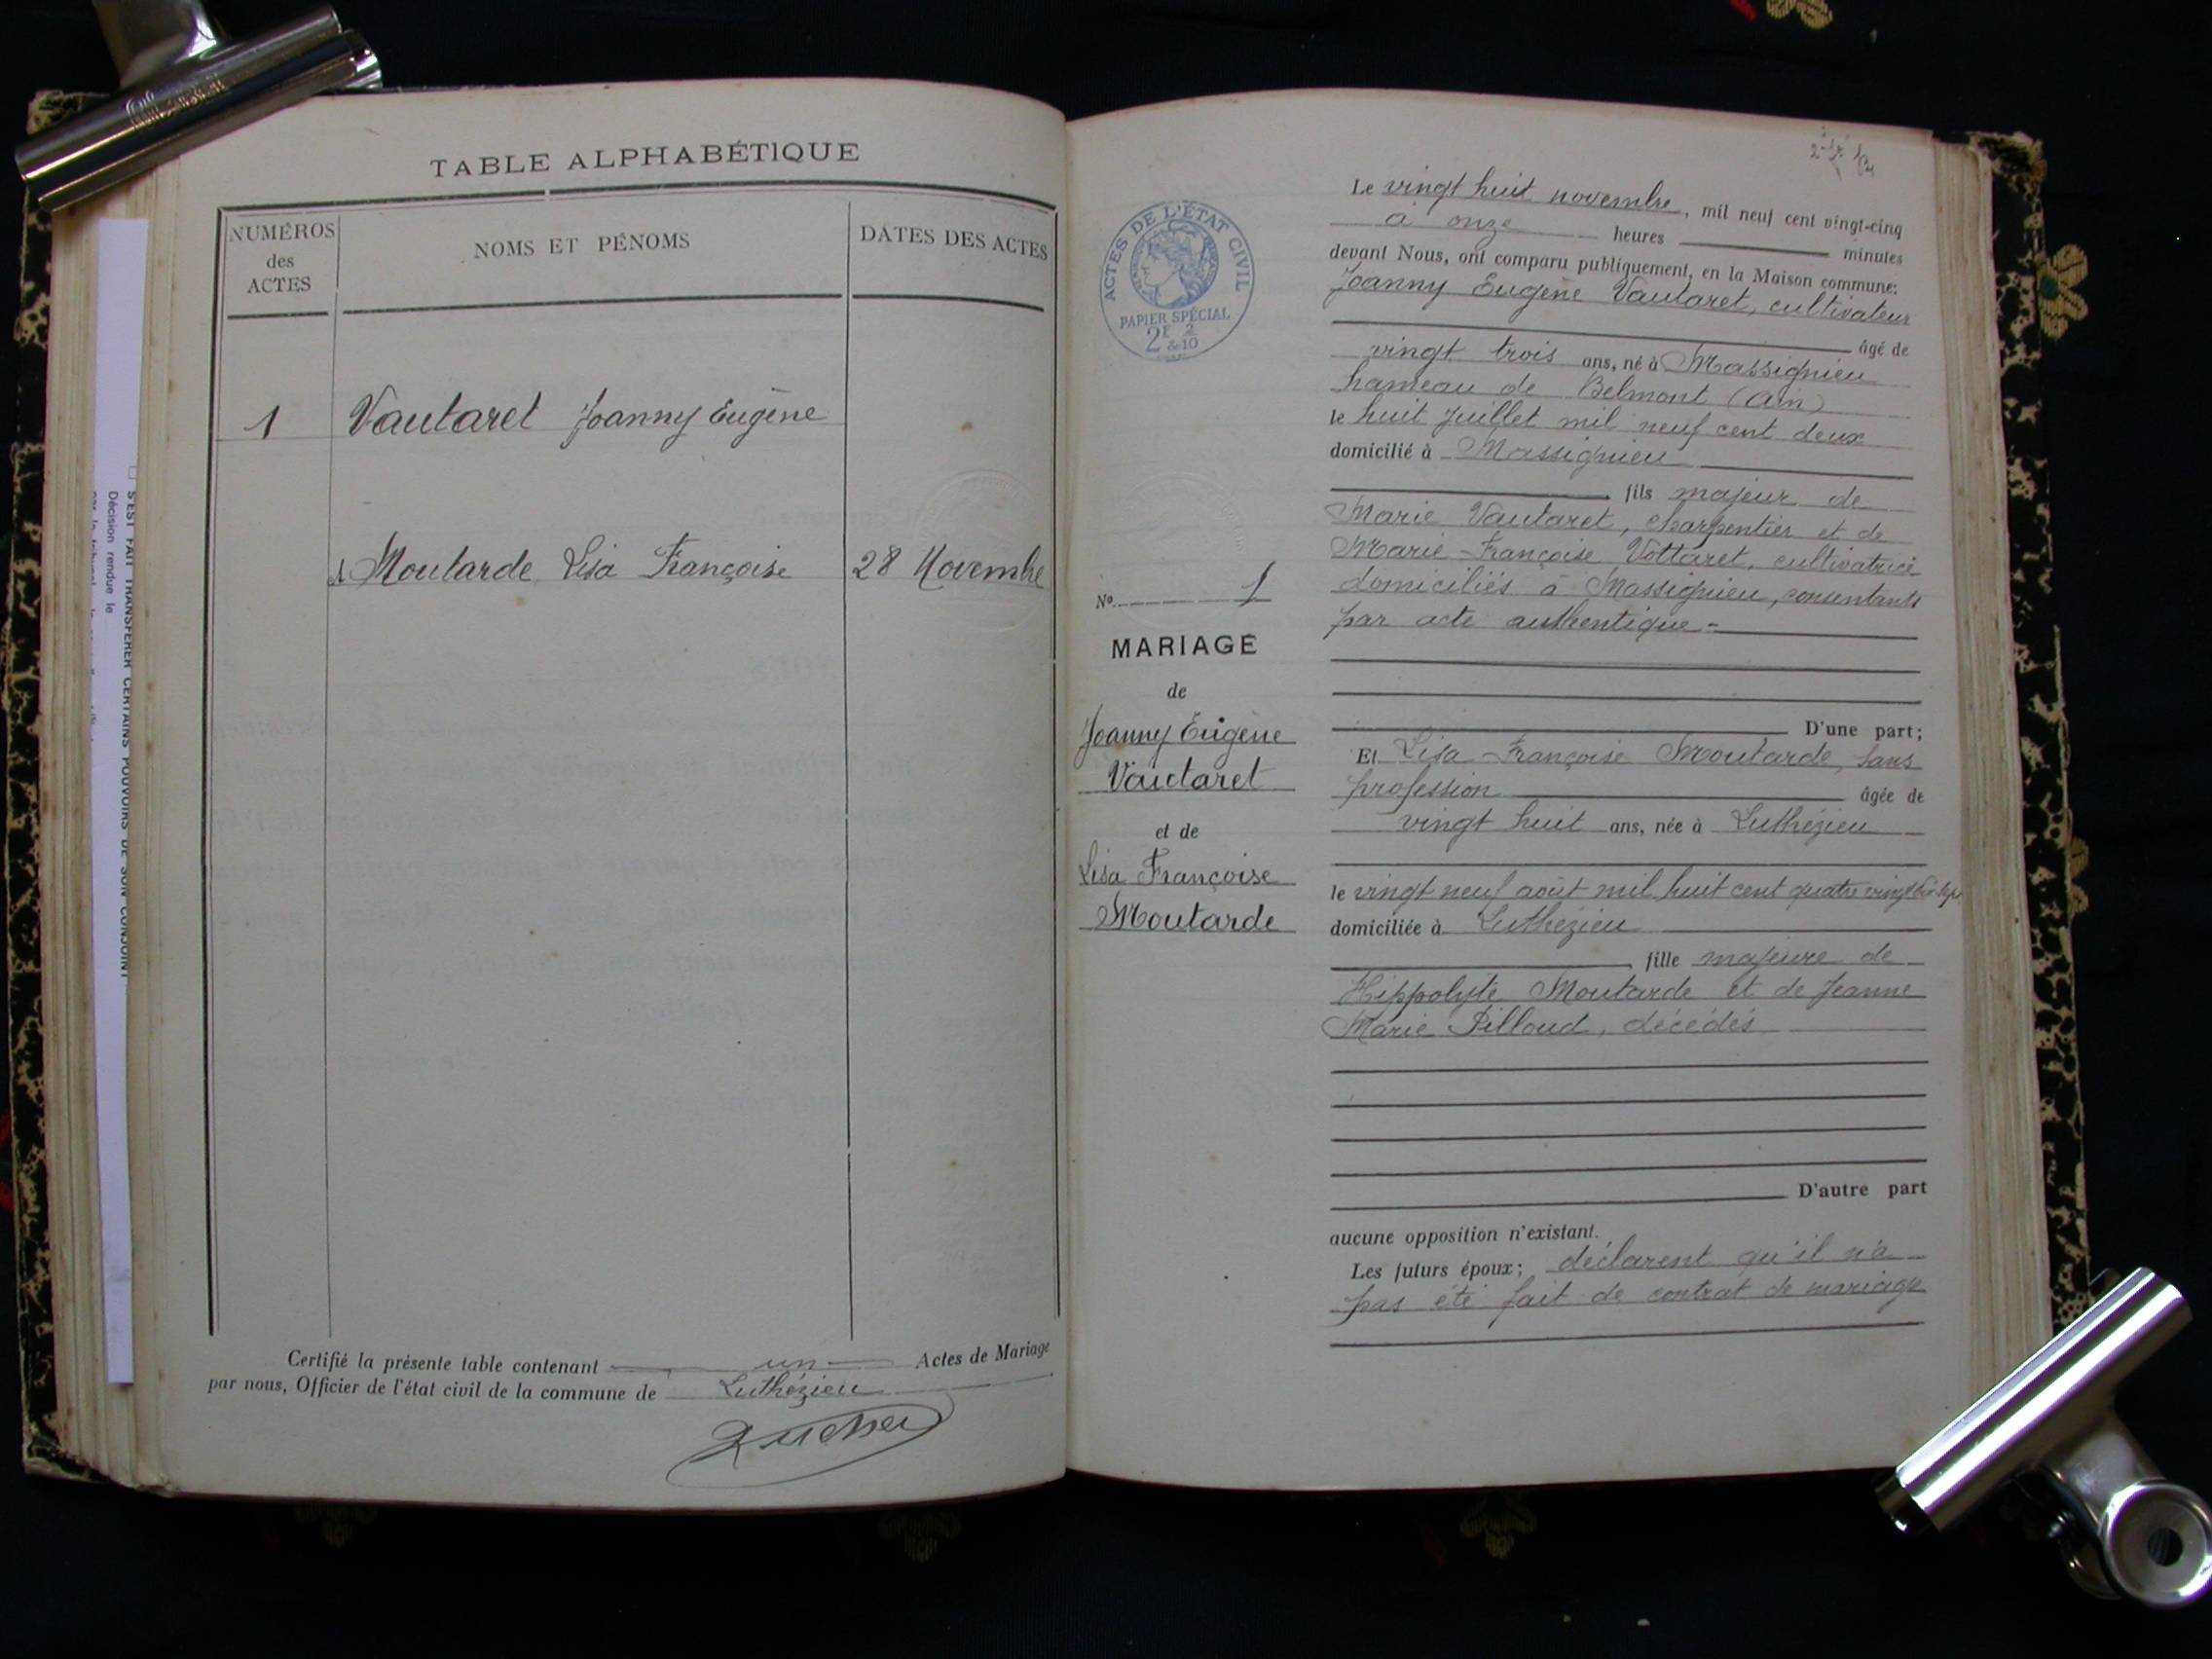 TABLE ALPHABÉTIQUE
NUMÉROS
des
ACTES
NOMS ET PÉNOMS
DATES DES ACTES
1 Vautaret Joanny Eugène
Moutarde Lisa Françoise 28 Novembre
Certifié la présente table contenant un Actes de Mariage
par nous, Officier de l'état civil de la commune de Luthézieu
S'EST FAIT TRANSFÉRER CERTAINS POUVOIRS DE SON CONJOINT
Décision rendue le
ACTES DE L'ÉTAT CIVIL
PAPIER SPÉCIAL
2F 2
&10
No 1
MARIAGE
de
Joanny Eugène
Vautaret
et de
Lisa Françoise
Moutarde
Le vingt huit novembre, mil neuf cent vingt-cinq
à onze heures minutes
devant Nous, ont comparu publiquement, en la Maison commune:
Joanny Eugène Vautaret, cultivateur
âgé de
vingt trois ans, né à Massignieu
hameau de Belmont (Ain)
le huit Juillet mil neuf cent deux
domicilié à Massignieu
fils majeur de
Marie Vautaret, charpentier et de
Marie Françoise Vottaret, cultivatrice
domiciliés à Massignieu, consentants
par acte authentique
D'une part;
Et Lisa Françoise Moutarde, sans
profession âgée de
vingt huit ans, née à Luthézieu
le vingt neuf août mil huit cent quatre vingt
domiciliée à Luthézieu
fille majeure de
Hippolyte Moutarde et de Jeanne
Marie Pilloud, décédés
D'autre part
aucune opposition n'existant.
Les futurs époux; déclarent qu'il n'a
pas été fait de contrat de mariage